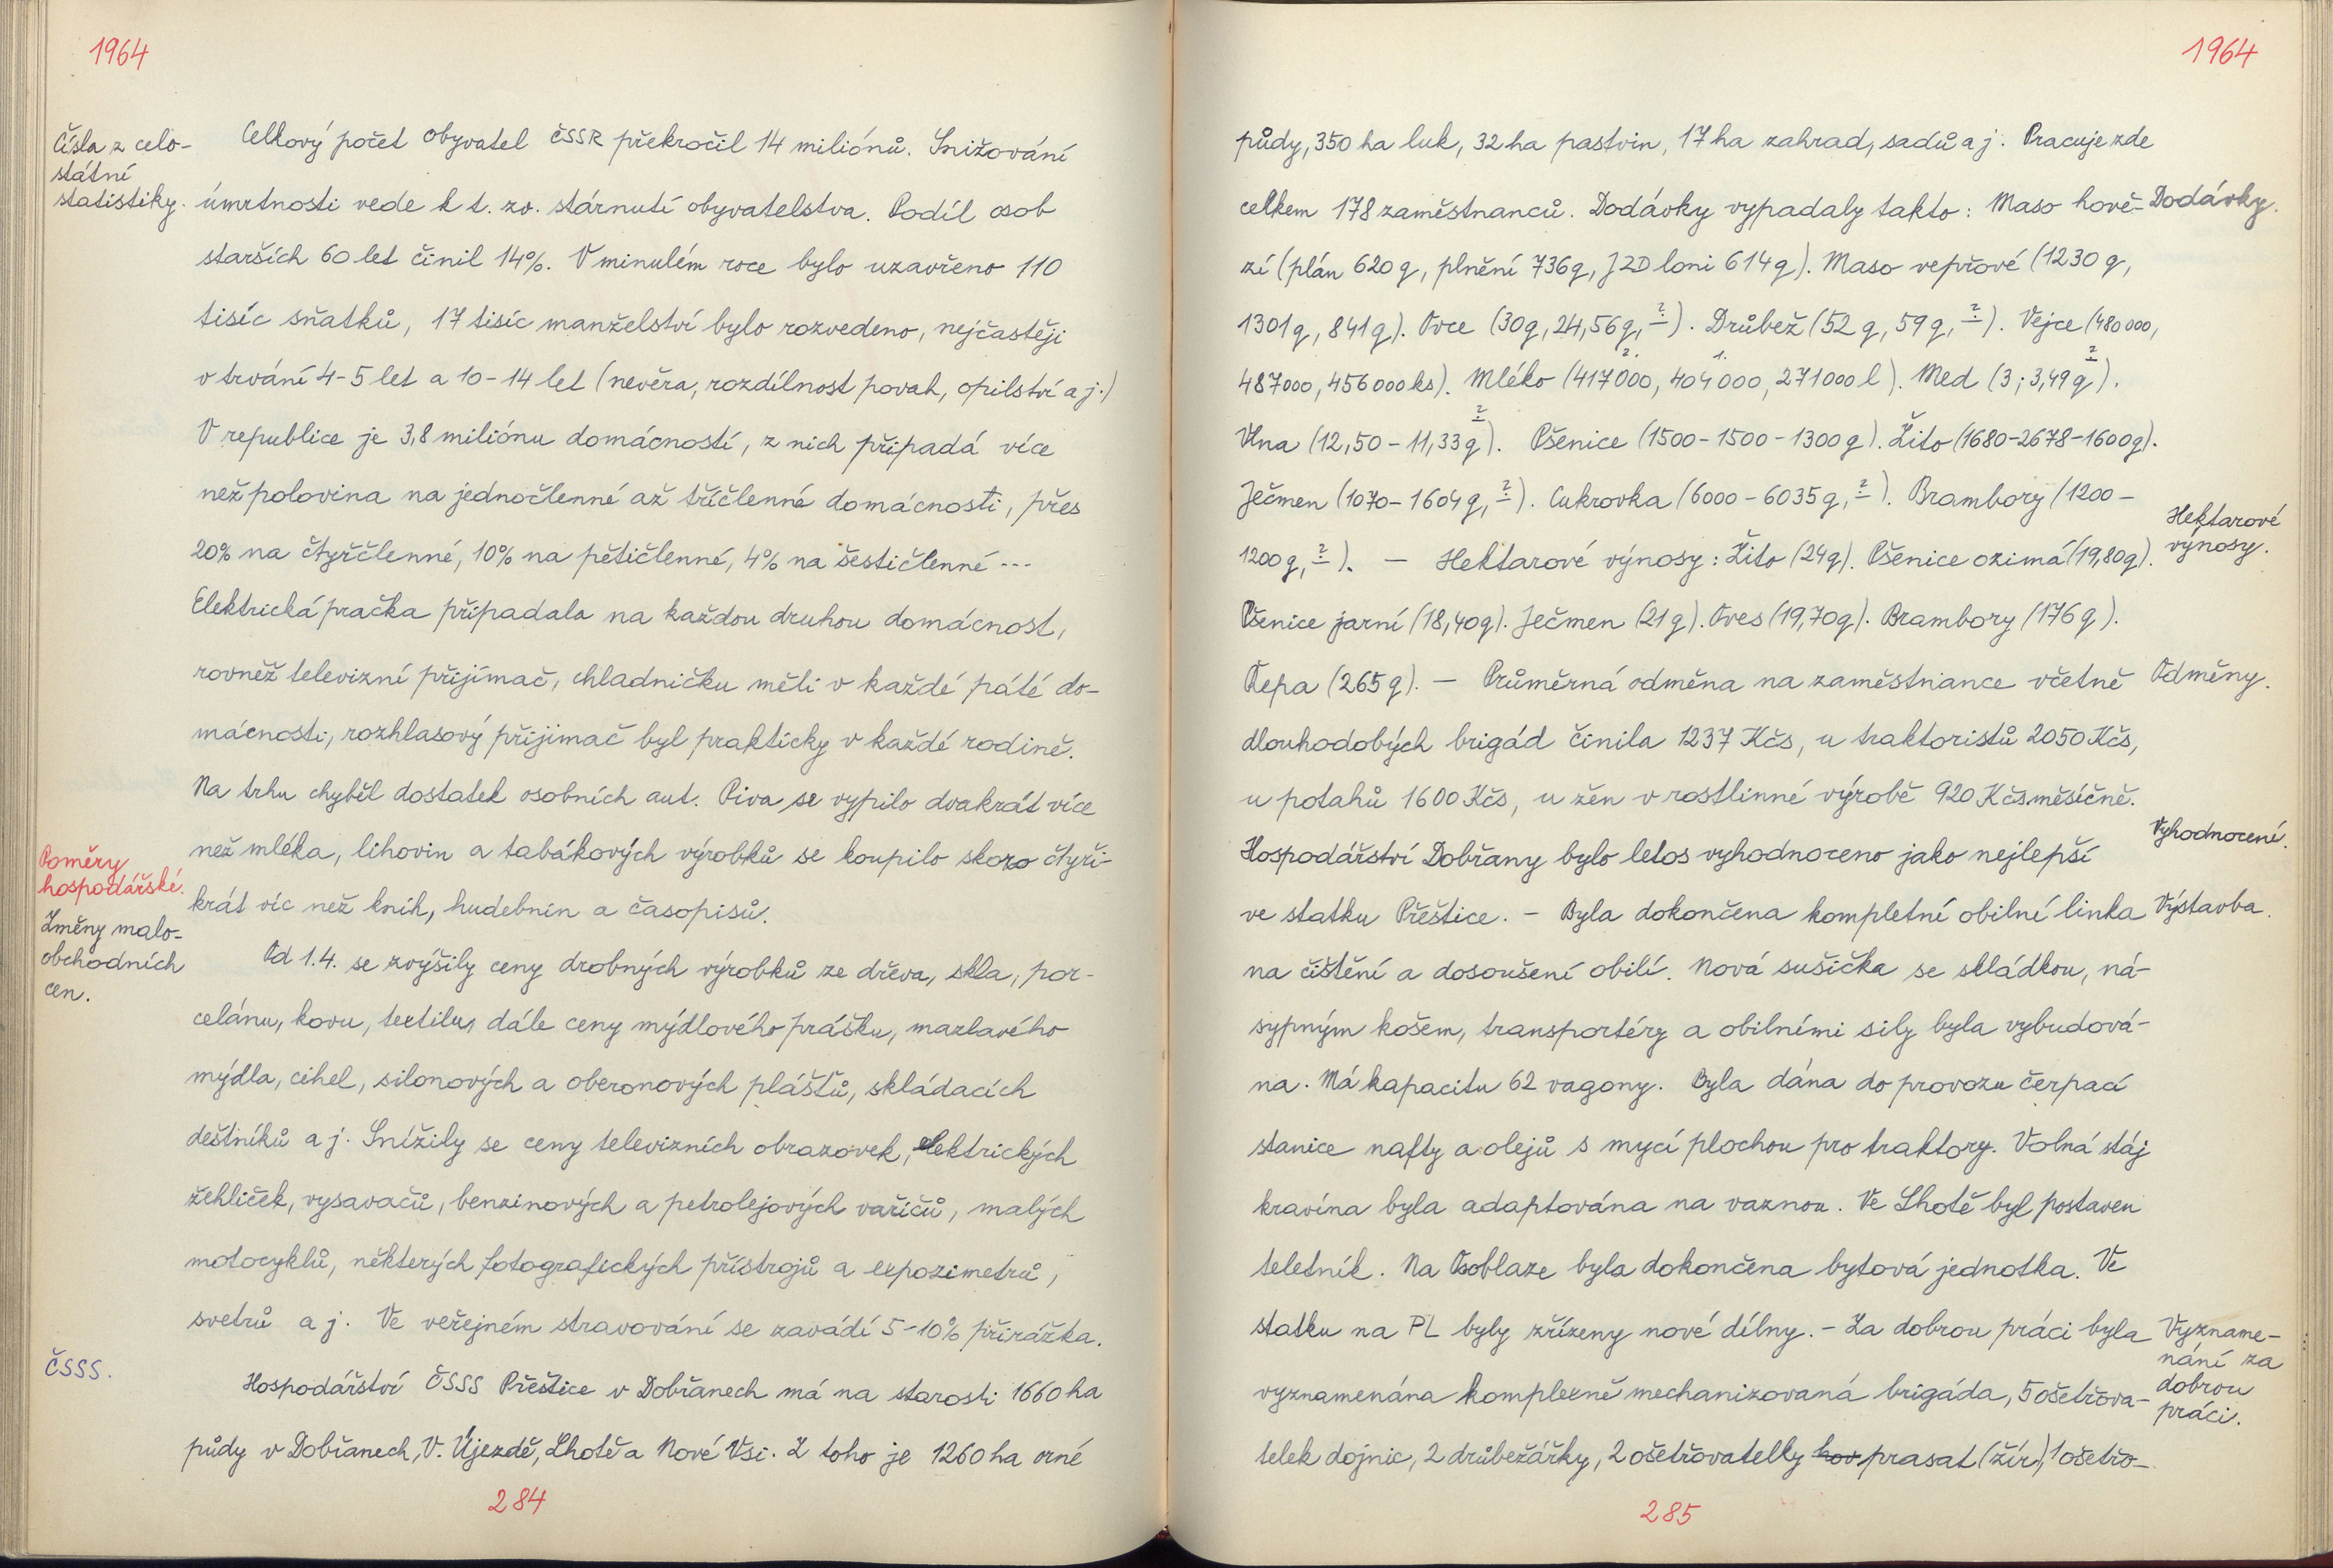 1964
Čísla z celo-
státní
statistiky.
Celkový počet obyvatel ČSSR překročil 14 miliónů. Snižování
úmrtnosti vede k t. zv. stárnutí obyvatelstva. Podíl osob
starších 60 let činil 14%. V minulém roce bylo uzavřeno 110
tisíc sňatků, 17 tisíc manželství bylo rozvedeno, nejčastěji
v trvání 4-5 let a 10-14 let (nevěra, rozdílnost povah, opilství a j.)
V republice je 3,8 miliónu domácností, z nich připadá více
než polovina na jednočlenné až tříčlenné domácnosti, přes
20% na čtyřčlenné, 10% na pětičlenné, 4% na šestičlenné ...
Elektrická pračka připadala na každou druhou domácnost,
rovněž televizní přijímač, chladničku měli v každé páté do-
mácnosti, rozhlasový přijimač byl prakticky v každé rodině.
Na trhu chyběl dostatek osobních aut. Piva se vypilo dvakrát více
než mléka, lihovin a tabákových výrobků se koupilo skoro čtyři-
krát víc než knih, hudebnin a časopisů.
Poměry
hospodářské.
Změny malo-
obchodních
cen.
Od 1.4. se zvýšily ceny drobných výrobků ze dřeva, skla, por-
celánu, kovu, textilu, dále ceny mýdlového prášku, mazlavého
mýdla, cihel, silonových a oberonových plášťů, skládacích
deštníků a j. Snížily se ceny televizních obrazovek, elektrických
žehliček, vysavačů, benzinových a petrolejových vařičů, malých
motocyklů, některých fotografických přístrojů a expozimetrů,
svetrů a j. Ve veřejném stravování se zavádí 5-10% přirážka.
ČSSS.
Hospodářství ČSSS Přeštice v Dobřanech má na starosti 1660 ha
půdy v Dobřanech, V. Újezdě, Lhotě a Nové Vsi. Z toho je 1260 ha orné
284
1964
půdy, 350 ha luk, 32 ha pastvin, 17 ha zahrad, sadů a j. Pracuje zde
celkem 178 zaměstnanců. Dodávky vypadaly takto: Maso hově-
Dodávky.
zí (plán 620 q, plnění 736 q, JZD loni 614 q). Maso vepřové (1230 q,
1301 q, 841 q). Ovce (30q, 24,56q, ?). Drůbež (52 q, 59 q, ?). Vejce (480 000,
487 000, 456 000 ks). Mléko (417 000, 404 000, 271 000 l). Med (3; 3,49 q ?).
2. 1.
Vlna (12,50 - 11,33 q ?). Pšenice (1500 - 1500 - 1300 q). Žito (1680-2678-1600q).
Ječmen (1070 - 1604 q, ?). Cukrovka (6000 - 6035 q, ?). Brambory (1200 -
1200 q, ?). - Hektarové výnosy: Žito (24q). Pšenice ozimá (19,80q).
Hektarové
výnosy.
Pšenice jarní (18,40q). Ječmen (21 q). Oves (19,70q). Brambory (176 q).
Řepa (265 q). - Průměrná odměna na zaměstnance včetně
Odměny.
dlouhodobých brigád činila 1237 Kčs, u traktoristů 2050 Kčs,
u potahů 1600 Kčs, u žen v rostlinné výrobě 920 Kčs měsíčně.
Hospodářství Dobřany bylo letos vyhodnoceno jako nejlepší
Vyhodnocení.
ve statku Přeštice. - Byla dokončena kompletní obilní linka
Výstavba.
na čištění a dosoušení obilí. Nová sušička se skládkou, ná-
sypným košem, transportéry a obilními sily byla vybudová-
na. Má kapacitu 62 vagony. Byla dána do provozu čerpací
stanice nafty a olejů s mycí plochou pro traktory. Volná stáj
kravína byla adaptována na vaznou. Ve Lhotě byl postaven
teletník. Na Osoblaze byla dokončena bytová jednotka. Ve
statku na PL byly zřízeny nové dílny. - Za dobrou práci byla
Vyzname-
nání za
dobrou
práci.
vyznamenána komplexně mechanizovaná brigáda, 5 ošetřova-
telek dojnic, 2 drůbežářky, 2 ošetřovatelky hov prasat (žír), 1 ošetřo-
285